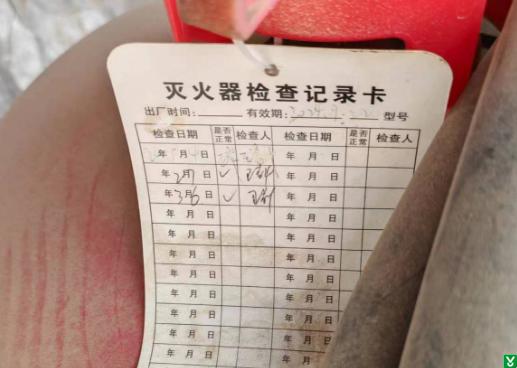 灭火器检查记录卡
出厂时间: 有效期: 型号
检查日期 是否正常 检查人 检查日期 是否正常 检查人
年 月 日 年 月 日
年 2月7日 ✓ 年 月 日
年 3月6日 ✓ 年 月 日
年 月 日 年 月 日
年 月 日 年 月 日
年 月 日 年 月 日
年 月 日 年 月 日
年 月 日 年 月 日
年 月 日 年 月 日
年 月 日 年 月 日
年 月 日 年 月 日